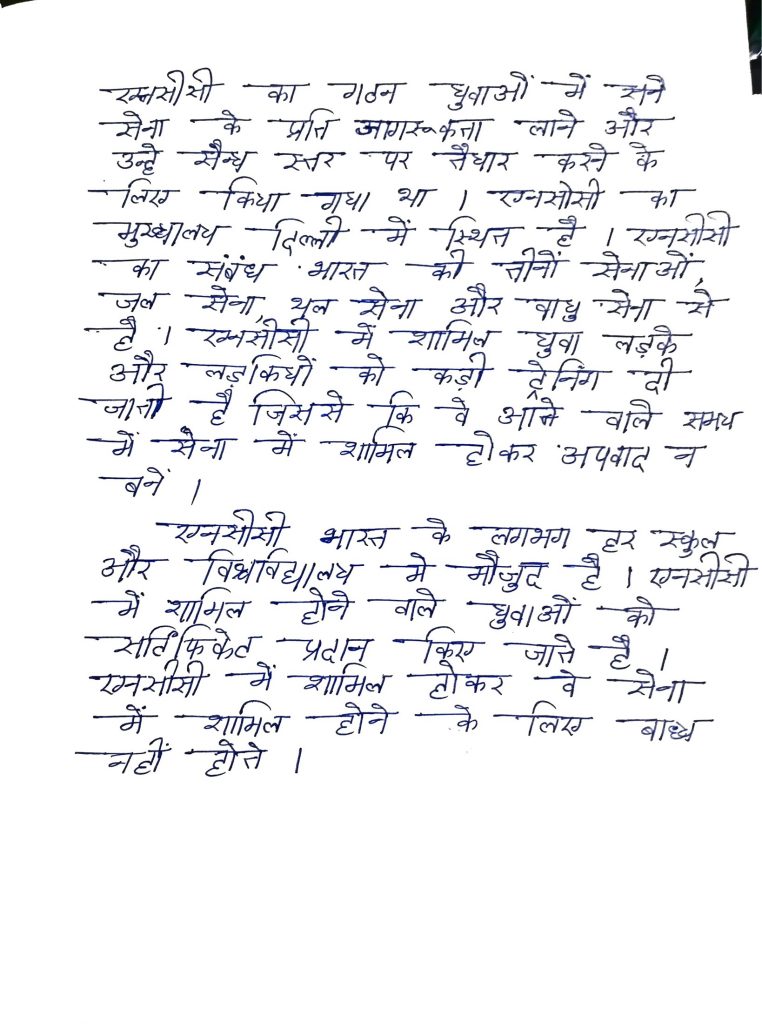 एनसीसी का गठन युवाओं में सने
सेना के प्रति जागरूकता लाने और
उन्हे सैन्य स्तर पर तैयार करने के
लिए किया गया था । एनसीसी का
मुख्यालय दिल्ली में स्थित है । एनसीसी
का संबंध भारत की तीनों सेनाओं,
जल सेना, थल सेना और वायु सेना से
है । एनसीसी में शामिल युवा लड़के
और लड़कियों को कड़ी ट्रेनिंग दी
जाती है जिससे कि वे आने वाले समय
में सेना में शामिल होकर अपवाद न
बनें ।
एनसीसी भारत के लगभग हर स्कुल
और विश्वविद्यालय मे मौजुद है । एनसीसी
में शामिल होने वाले युवाओं को
सर्टिफिकेट प्रदान किए जाते है ।
एनसीसी में शामिल होकर वे सेना
में शामिल होने के लिए बाध्य
नहीं होते ।